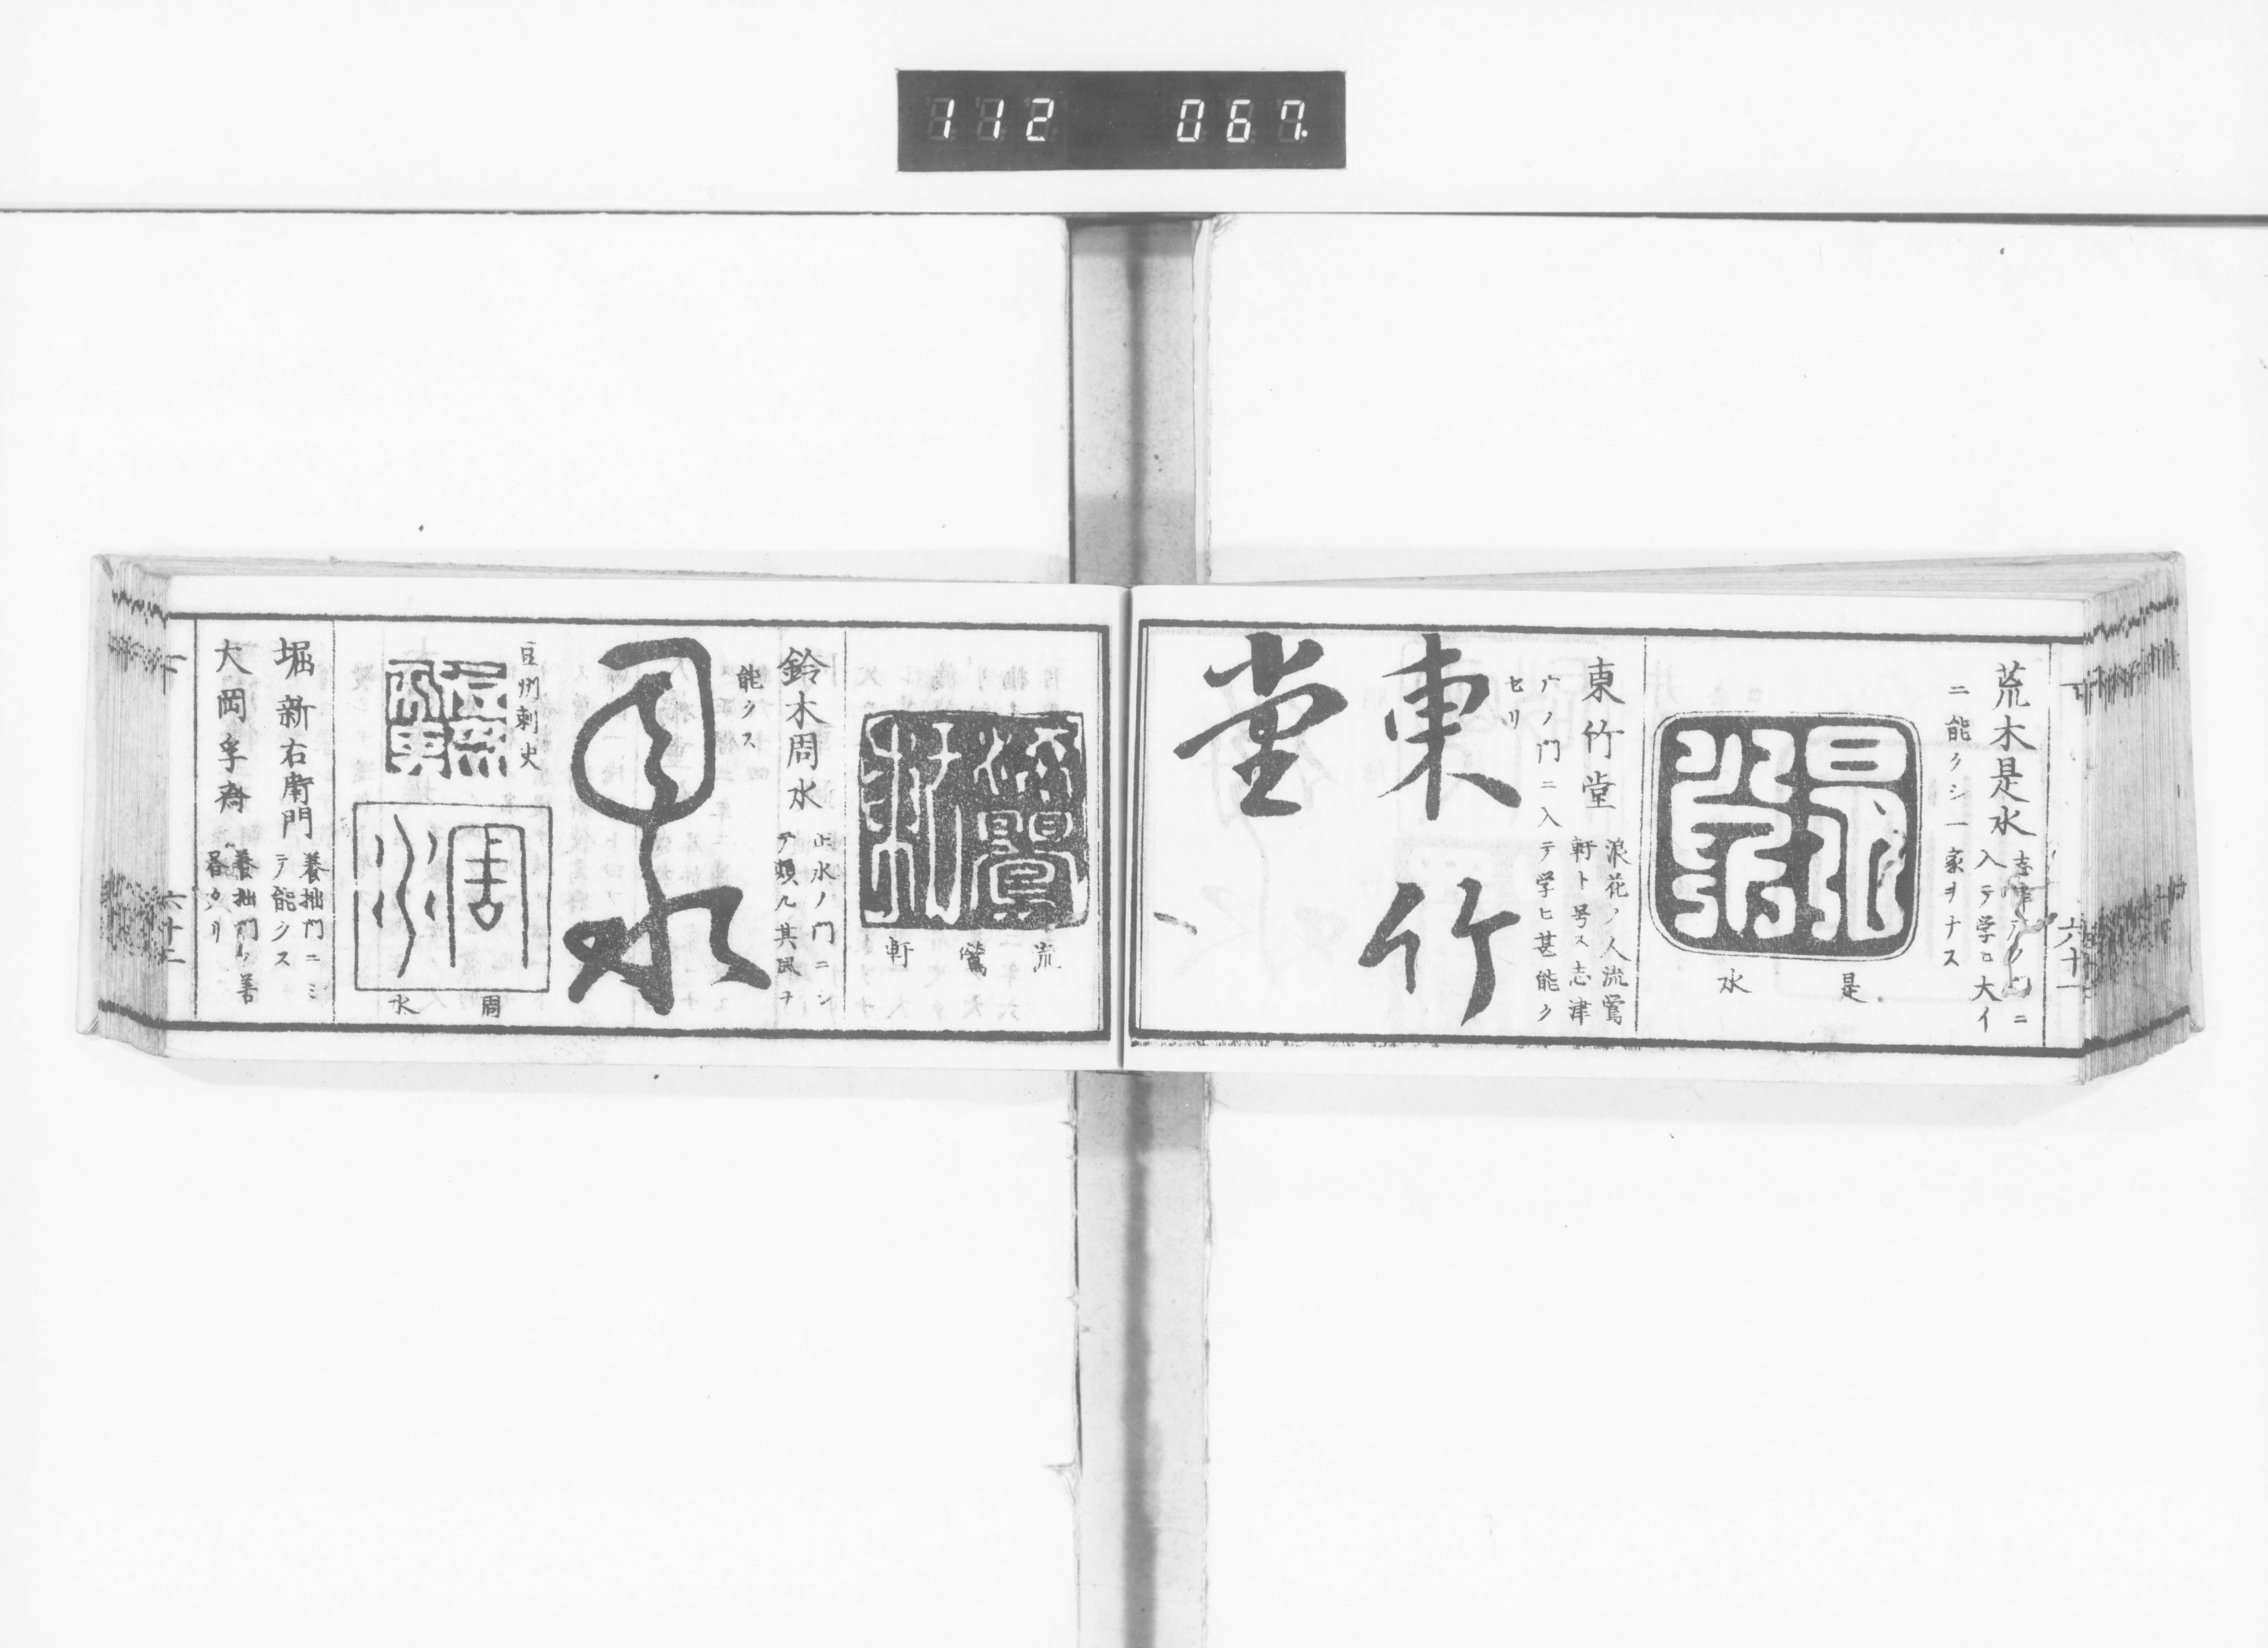 112 067.
荒木是水
志津
ノ門ニ
入テ学ヒ大イ
ニ能クシ一家ヲナス
是
水
東竹堂
浪花ノ人流鶯
軒ト号ス志津
广ノ門ニ入テ学ヒ甚能ク
セリ
東竹
堂
六十一
流
鶯
軒
鈴木周水
止水ノ門ニシ
テ頗ル其風ヲ
能クス
周水
豆州刺史
周
水
堀新右衛門
養拙門ニシ
テ能クス
大岡孚斎
養拙門
善
書タリ
六十二